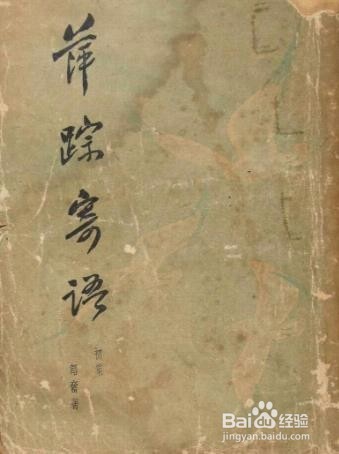 萍踪寄语
初集
韬奋著
Baidu经验
jingyan.baidu.com